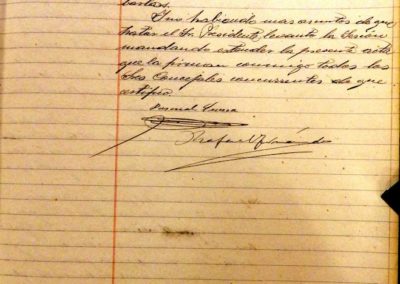 bastas.
Y no habiendo mas asuntos de que
tratar el Sr. Presidente, levantó la Sesión
mandando extender la presente acta
que la firman conmigo todos los
Sres Concejales concurrentes de que
certifico.
Pascual
Rafael Fernández